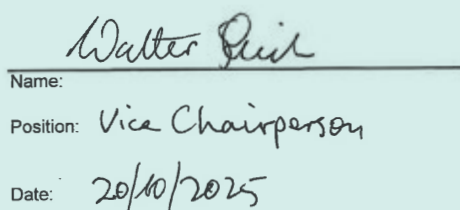 Walter
Name:
Position: Vice Chairperson
Date: 20/10/2025